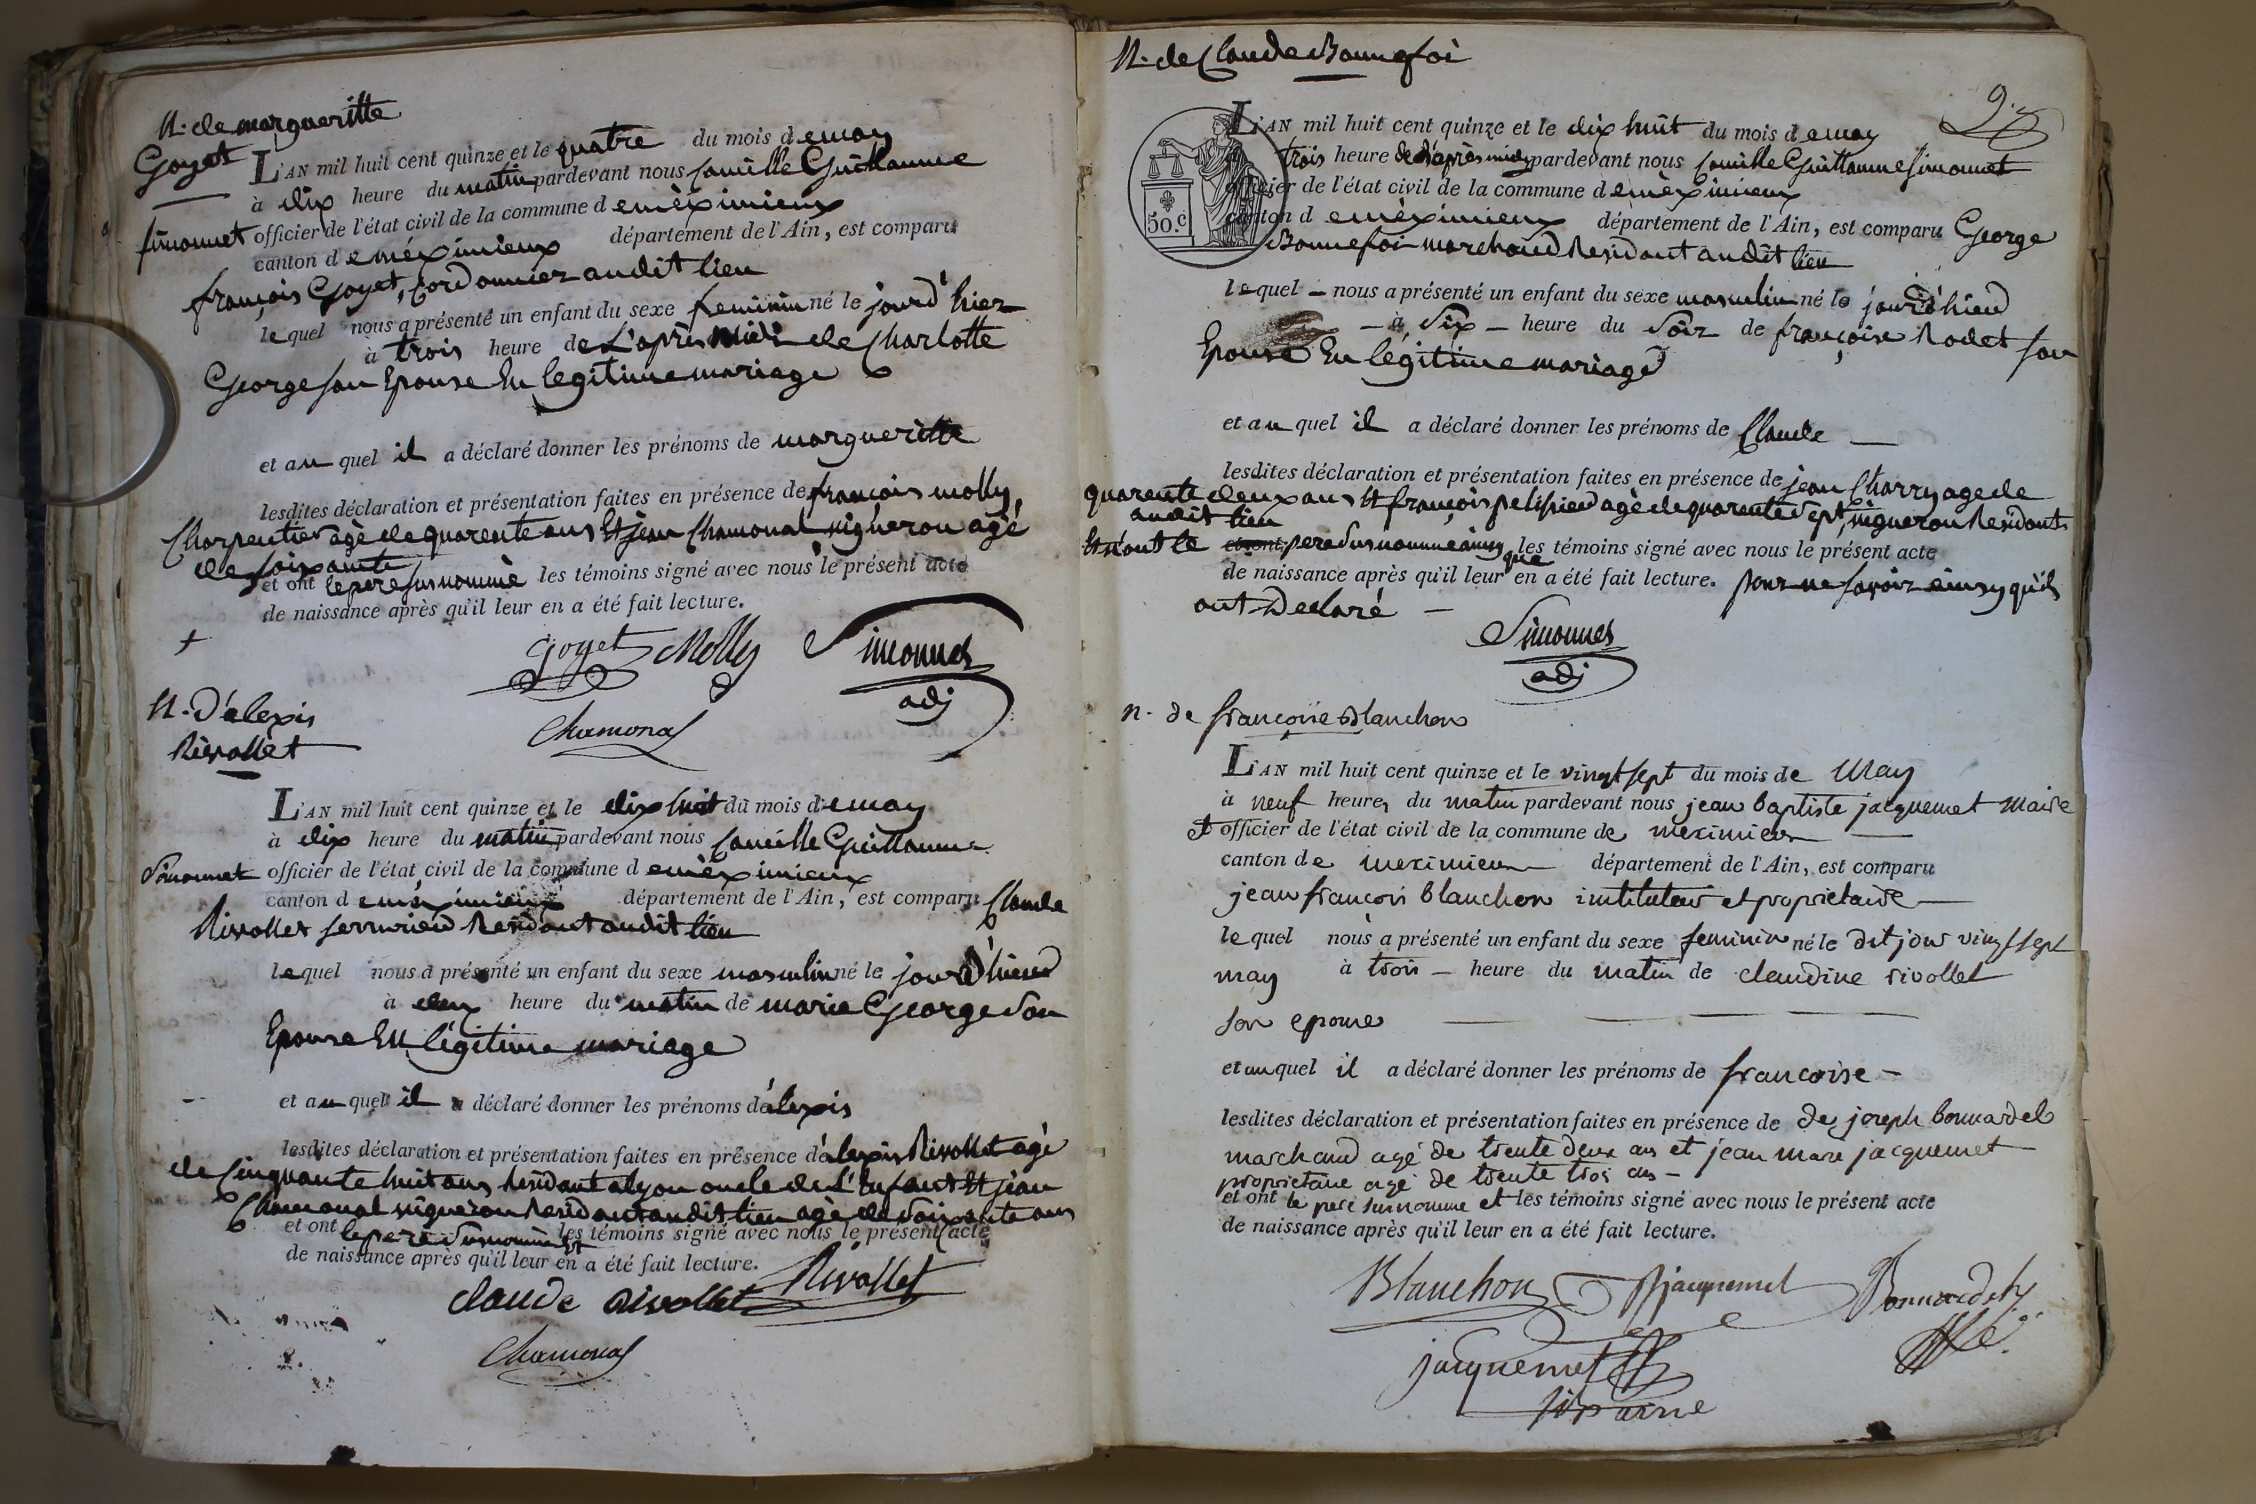 N. de margueritte
Goyet
L'AN mil huit cent quinze et le quatre du mois d emay
à dix heure du matin pardevant nous Camille Guillaume
simonnet officier de l'état civil de la commune d eméximieux
canton d eméximieux département de l'Ain, est comparu
françois Goyet, cordonnier audit lieu
lequel nous a présenté un enfant du sexe feminin né le jourd'hier
à trois heure de L'après midi de Charlotte
George son Epouse En legitime mariage
et au quel il a déclaré donner les prénoms de margueritte
lesdites déclaration et présentation faites en présence de françois molly,
Charpentier agé de quarente ans Et jean Chamonal vigneron agé
de soixante
et ont le pere susnommé les témoins signé avec nous le présent acte
de naissance après qu'il leur en a été fait lecture.
goyet Molly Simonnet
adj
Chamonal
N. D'alexis
Rivollet
L'AN mil huit cent quinze et le dix huit du mois d emay
à dix heure du matin pardevant nous Camille Guillaume
Simonnet officier de l'état civil de la commune d eméximieux
canton d eméximieux département de l'Ain, est comparu Claude
Rivollet serrurier Residant audit lieu
lequel nous a présenté un enfant du sexe masculin né le jour d'hier
à deux heure du matin de marie George son
Epouse En légitime mariage
et au quel il a déclaré donner les prénoms d'alexis
lesdites déclaration et présentation faites en présence d'alexis Rivollet agé
de Cinquante huit ans Residant a lyon oncle de L'Enfant Et jean
Chamonal vigneron Residant audit lieu agé de soixante ans
et ont le pere susnommé Et les témoins signé avec nous le présent acte
de naissance après qu'il leur en a été fait lecture.
claude Rivollet Rivollet
Chamonal
N. de Claude Bonnefoi
L'AN mil huit cent quinze et le dix huit du mois d emay
à trois heure de l'après midy pardevant nous Camille Guillaume simonnet
officier de l'état civil de la commune d eméximieux
50.c canton d eméximieux département de l'Ain, est comparu George
Bonnefoi marchand Residant audit lieu
lequel nous a présenté un enfant du sexe masculin né le jour d'hier
à six heure du soir de françoise Rodet son
Epouse En légitime mariage
et au quel il a déclaré donner les prénoms de Claude
lesdites déclaration et présentation faites en présence de jean Charry age de
quarente deux ans Et françois pelissier agé de quarente sept, vigneron Residants
audit lieu
Et n'ont le et ont pere susnommé ainsy que les témoins signé avec nous le présent acte
de naissance après qu'il leur en a été fait lecture. pour ne savoir ainsy qu'ils
ont Declaré
Simonnet
adj
n. de francoise Blanchon
L'AN mil huit cent quinze et le vingt sept du mois de May
à neuf heures du matin pardevant nous jean baptiste jacquemet Maire
et officier de l'état civil de la commune de meximieux
canton de meximieux département de l'Ain, est comparu
jean françois blanchon instituteur et proprietaire
lequel nous a présenté un enfant du sexe feminin né le dit jour vingt sept
may à trois heure du matin de claudine rivollet
son epouse
et au quel il a déclaré donner les prénoms de francoise
lesdites déclaration et présentation faites en présence de de joseph bonnardel
marchand agé de trente deux ans et jean marc jacquemet
proprietaire agé de trente trois ans
et ont le pere susnommé et les témoins signé avec nous le présent acte
de naissance après qu'il leur en a été fait lecture.
Blanchon jacquemet Bonnardel
jacquemet